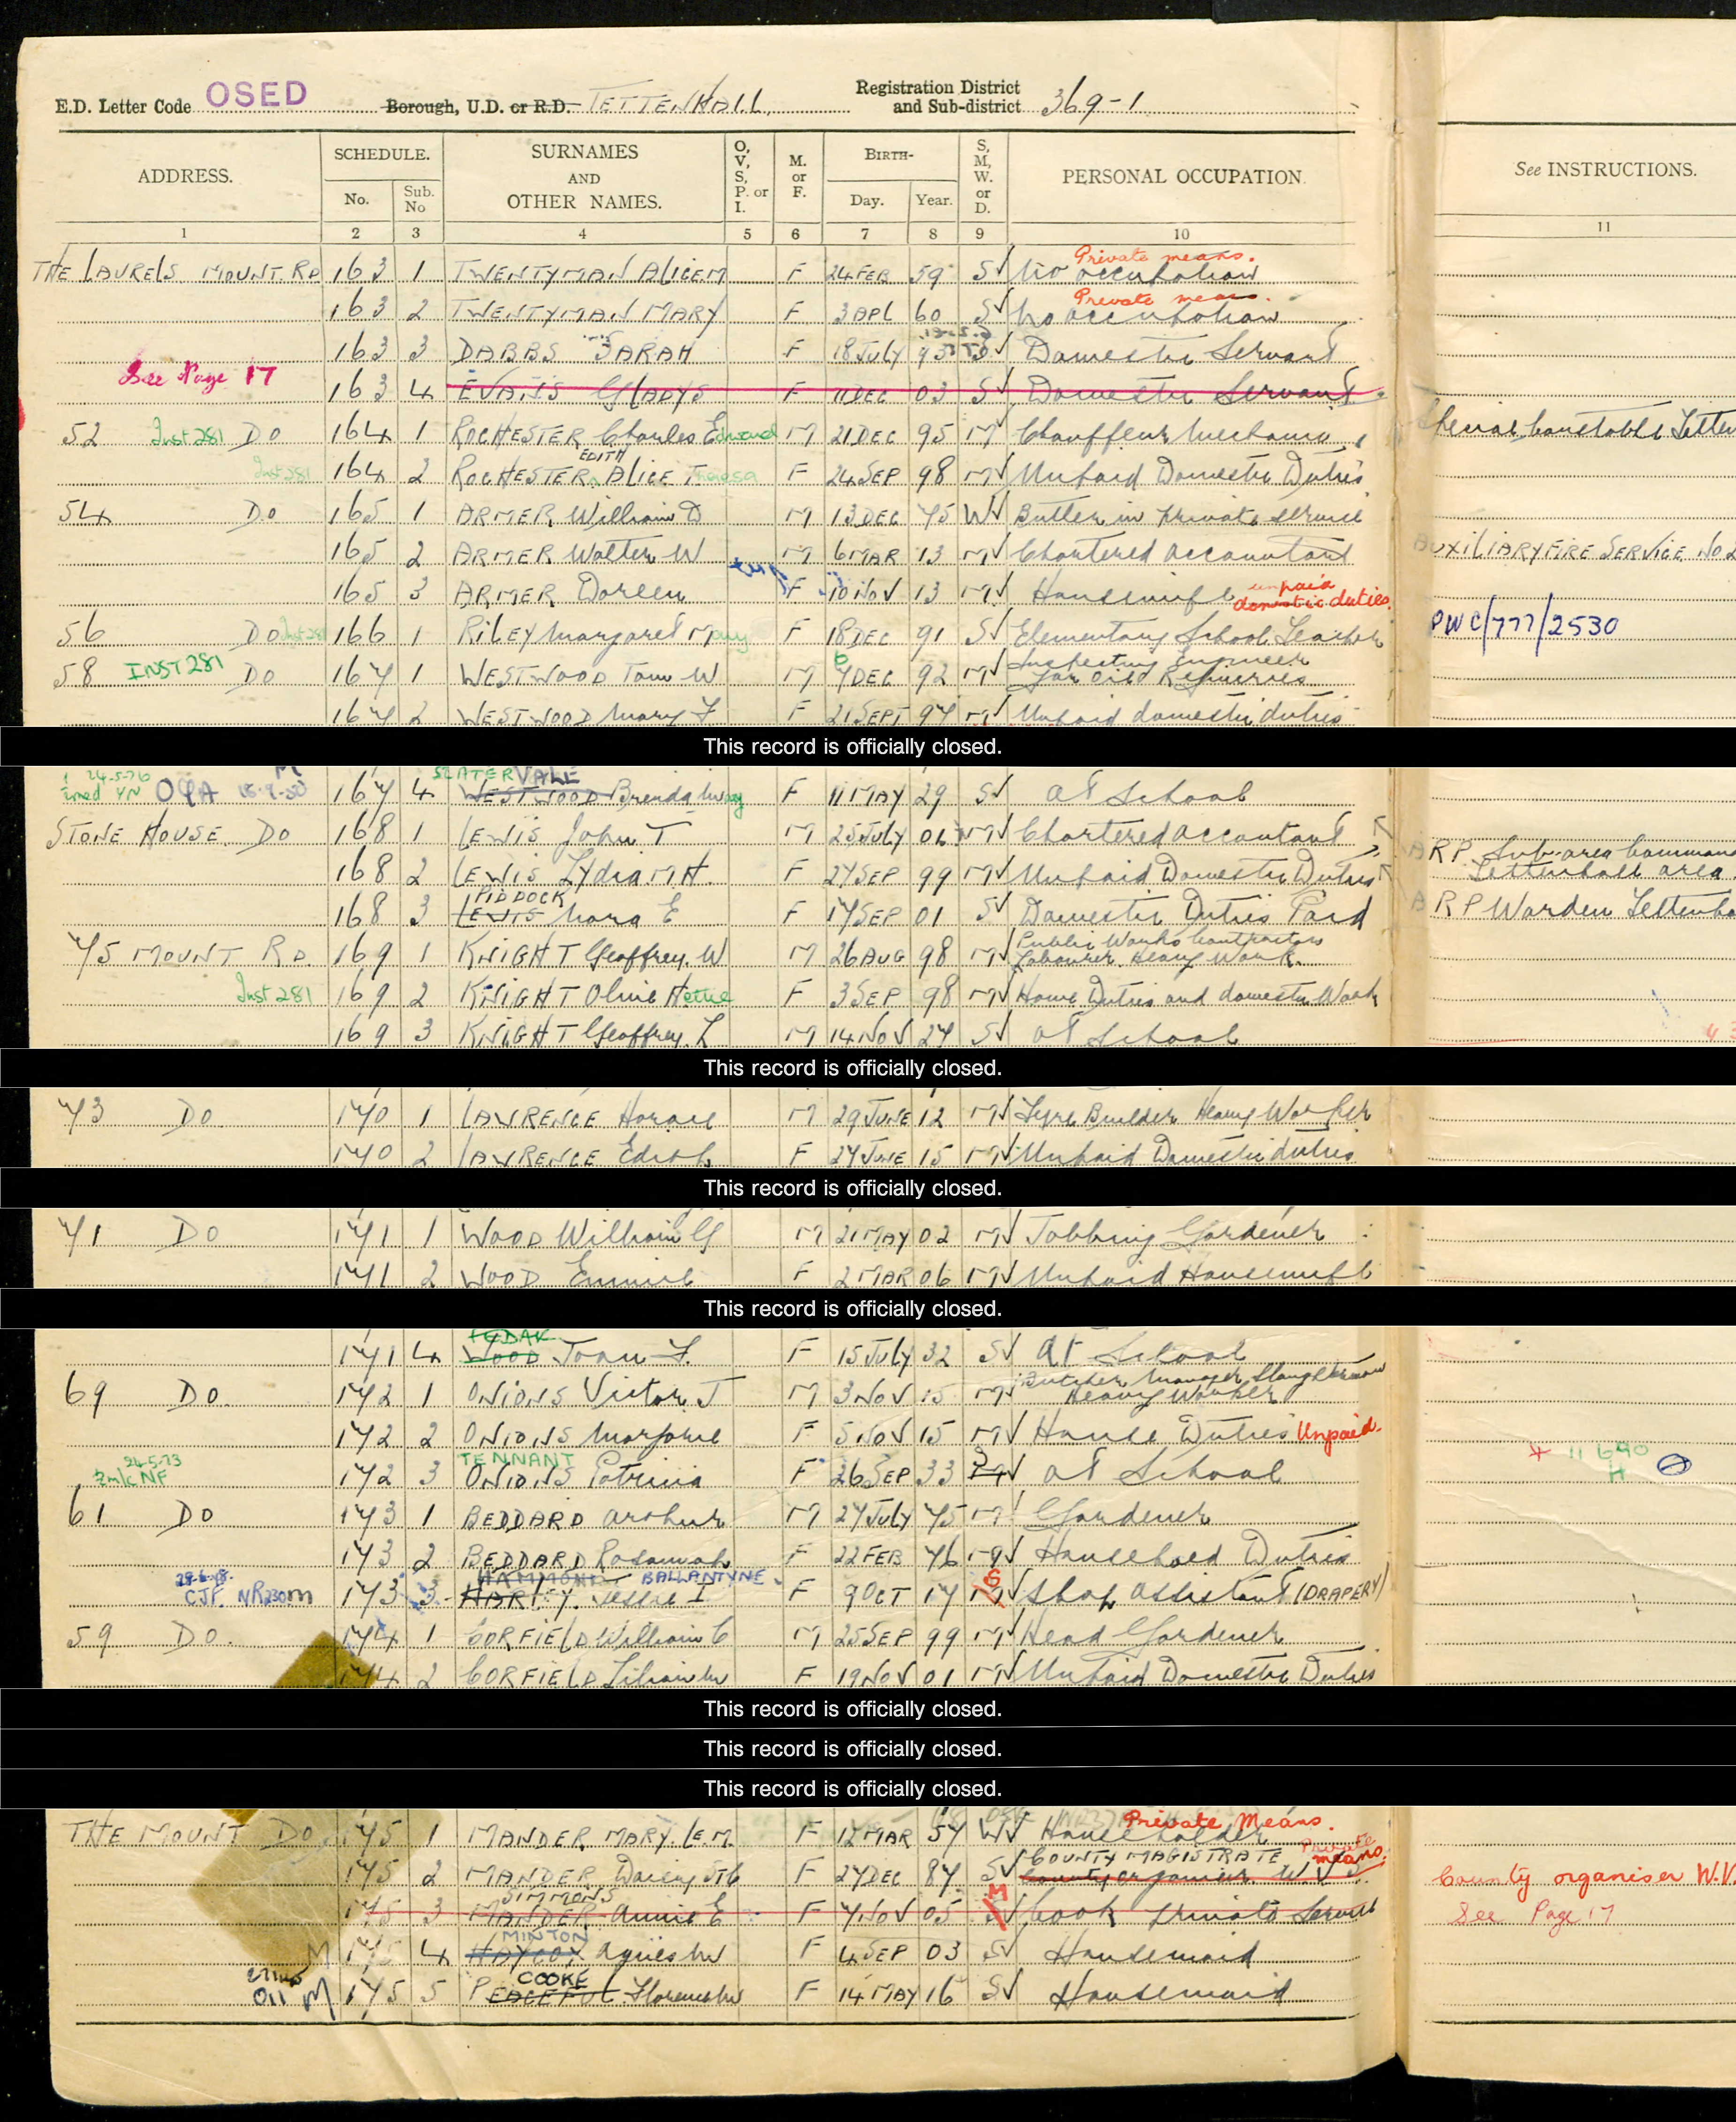 E.D. Letter Code OSED Borough, U.D. or R.D. TETTENHALL Registration District and Sub-district 369-1
ADDRESS. SCHEDULE. No. Sub. No SURNAMES AND OTHER NAMES. O, V, S, P. or I. M. or F. BIRTH- Day. Year. S, M, W. or D. PERSONAL OCCUPATION. See INSTRUCTIONS.
1 2 3 4 5 6 7 8 9 10 11
Private means.
THE LAURELS MOUNT. RD 163 1 TWENTYMAN ALICE M F 24 FEB 59 S No occupation
Private means.
163 2 TWENTYMAN MARY F 3 APL 60 S No occupation
163 3 DABBS SARAH F 18 July 93 Domestic Servant
See Page 17
163 4 EVANS GLADYS F 11 DEC 03 S Domestic Servant
52 Inst 281 DO 164 1 ROCHESTER Charles Edward M 21 DEC 95 M Chauffeur Mechanic Special Constable Tetten
EDITH
Inst 281 164 2 ROCHESTER ALICE Theresa F 24 SEP 98 M Unpaid Domestic Duties
54 DO 165 1 ARMER William D M 13 DEC 75 W Butler in private service
165 2 ARMER Walter W M 6 MAR 13 M Chartered Accountant AUXILIARY FIRE SERVICE No 2
165 3 ARMER Doreen F 10 NOV 13 M Housewife unpaid domestic duties.
56 DO Inst 281 166 1 RILEY Margaret Mary F 18 DEC 91 S Elementary School Teacher PWC/777/2530
58 INST 281 DO 167 1 WESTWOOD Tom W M 7 DEC 92 M Inspecting Engineer for Oil Refineries
167 2 WESTWOOD Mary F F 21 SEPT 97 M Unpaid domestic duties
This record is officially closed.
24-5-76 SLATER VALE
167 4 WESTWOOD Brenda May F 11 MAY 29 S at School
STONE HOUSE DO 168 1 LEWIS John T M 25 July 06 M Chartered Accountant ARP Sub-area Command
168 2 LEWIS Lydia M H. F 27 SEP 99 M Unpaid Domestic Duties Tettenhall area
PIDDOCK
168 3 LEWIS Nora E F 17 SEP 01 S Domestic Duties Paid ARP Warden Tettenha
75 MOUNT RD. 169 1 KNIGHT Geoffrey W M 26 AUG 98 M Public Works Contractors Labourer Heavy Work.
Inst 281 169 2 KNIGHT Olive Hettie F 3 SEP 98 M Home Duties and domestic Work
169 3 KNIGHT Geoffrey L M 14 NOV 27 S at School
This record is officially closed.
73 DO. 170 1 LAWRENCE Horace M 29 JUNE 12 M Tyre Builder Heavy Worker
170 2 LAWRENCE Edith F 27 JUNE 15 M Unpaid Domestic duties
This record is officially closed.
71 DO 171 1 WOOD William G M 21 MAY 02 M Jobbing Gardener
171 2 WOOD Emmie F 2 MAR 06 M Unpaid Housewife
This record is officially closed.
171 4 WOOD Joan F. F 15 July 32 S at School
69 DO. 172 1 ONIONS Victor J M 3 NOV 15 M Butcher Manager Slaughterman Heavy Worker
172 2 ONIONS Marjorie F 5 NOV 15 M House Duties Unpaid.
24-5-73 TENNANT
NF 172 3 ONIONS Patricia F 26 SEP 33 at School 11690 H
61 DO 173 1 BEDDARD Arthur M 27 July 75 M Gardener
173 2 BEDDARD Rosannah F 22 FEB 76 M Household Duties
HAMMOND BALLANTYNE
CJP. NR230 m 173 3 HARLEY Jessie I F 9 OCT 17 S Shop Assistant (DRAPERY)
59 DO. 174 1 CORFIELD William C M 25 SEP 99 M Head Gardener
174 2 CORFIELD Lilian M F 19 NOV 01 M Unpaid Domestic Duties
This record is officially closed.
This record is officially closed.
This record is officially closed.
Private Means.
THE MOUNT DO. 175 1 MANDER MARY. L.E.M. F 12 MAR 57 W Householder
COUNTY MAGISTRATE Private means.
175 2 MANDER Daisy St C F 27 DEC 87 S County organiser WVS County organiser W.V.
SIMMONS
175 3 MANDER Annie E F 7 NOV 05 M Cook private Servant See Page 17
MINTON
M 175 4 HAYCOX Agnes M F 4 SEP 03 S Housemaid
COOKE
M 175 5 PEACEFUL Florence M F 14 MAY 16 S Housemaid